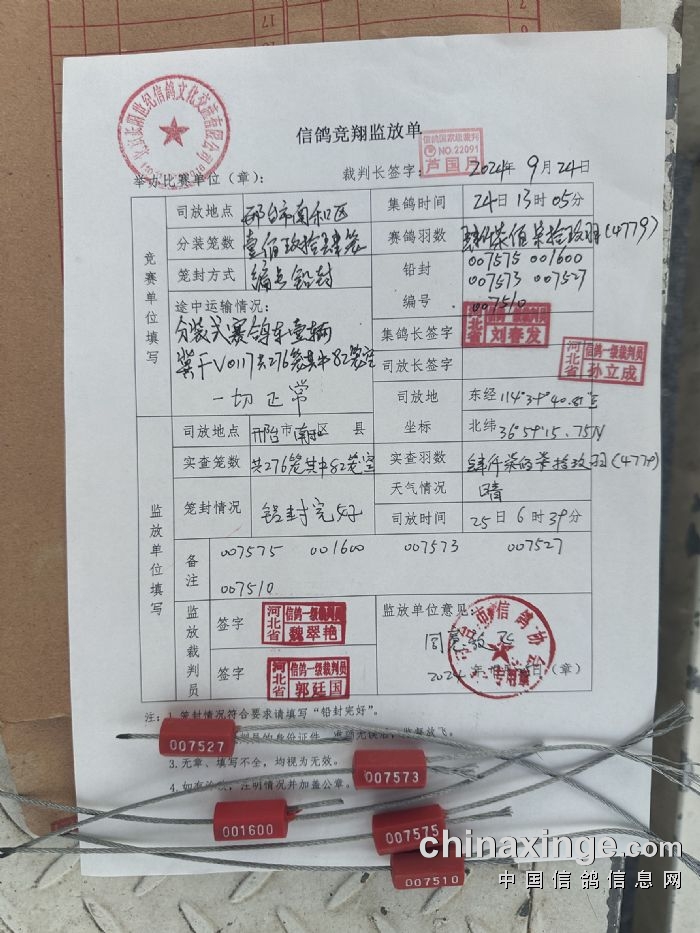 信鸽竞翔监放单
信鸽国家级裁判
NO.22091
举办比赛单位（章）：
裁判长签字：
2024年9月24日
竞赛单位填写
司放地点 邢台市南和区
集鸽时间 24日13时05分
分装笼数 壹佰玖拾肆笼
赛鸽羽数 肆仟柒佰柒拾玖羽(4779)
笼封方式
铅封编号 007575 001600
007573 007527
007510
途中运输情况：
分装式赛鸽车壹辆
冀FV0117共276笼其中82笼空
一切正常
集鸽长签字 刘春发
司放长签字 河北省 信鸽一级裁判员 孙立成
司放地坐标 东经114°
北纬36°59′15.75N
监放单位填写
司放地点 邢台市南和区 县
实查笼数 共276笼其中82笼空
实查羽数 肆仟柒佰柒拾玖羽(4779)
笼封情况 铅封完好
天气情况 晴
司放时间 25日6时39分
备注 007575 001600 007573 007527
007510
监放裁判员
签字 河北省 信鸽一级裁判员 魏翠艳
签字 河北省 信鸽一级裁判员 郭廷国
监放单位意见：
同意放飞
2024年
（章）
注：1.笼封情况符合要求请填写“铅封完好”。
3.无章、填写不全，均视为无效。
注明情况并加盖公章。
007527
007573
001600
007575
007510
chinaxinge.com
中国信鸽信息网